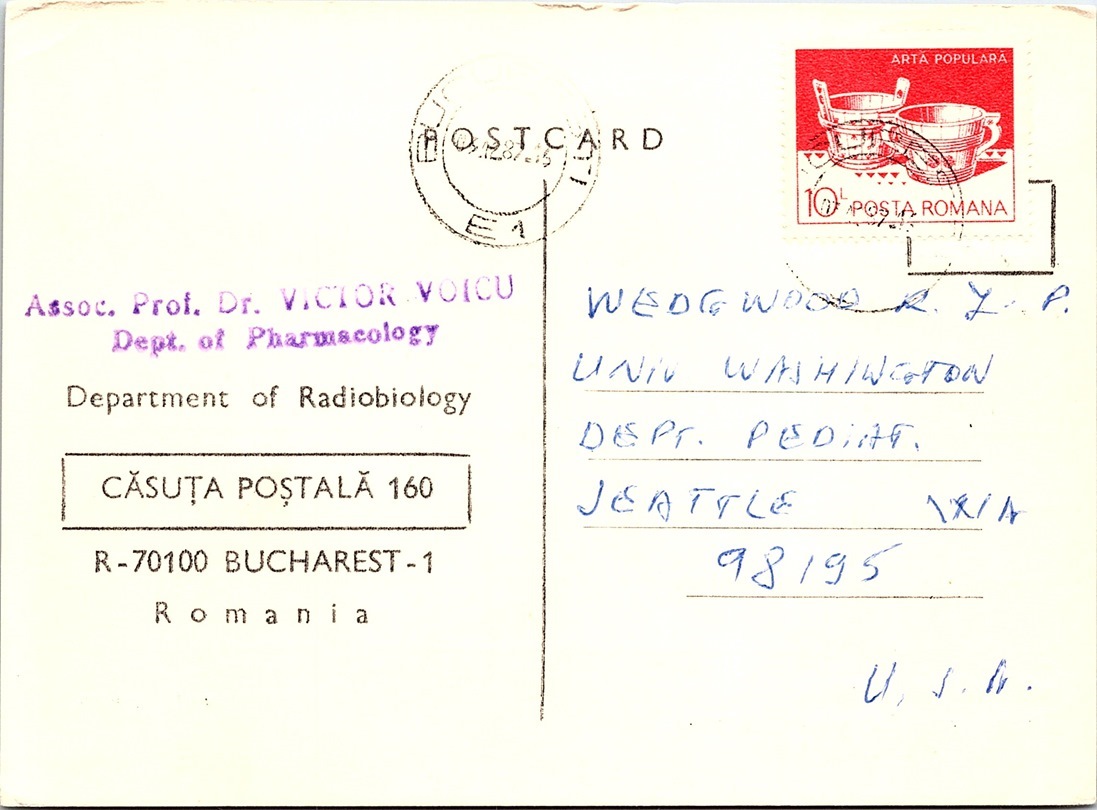 POSTCARD
E 1
ARTĂ POPULARĂ
10L POSTA ROMANA
Assoc. Prof. Dr. VICTOR VOICU
Dept. of Pharmacology
Department of Radiobiology
CĂSUȚA POȘTALĂ 160
R-70100 BUCHAREST-1
Romania
WEDGWOOD R. J. P.
UNIV WASHINGTON
DEPT. PEDIAT.
SEATTLE WA
98195
U.S.A.